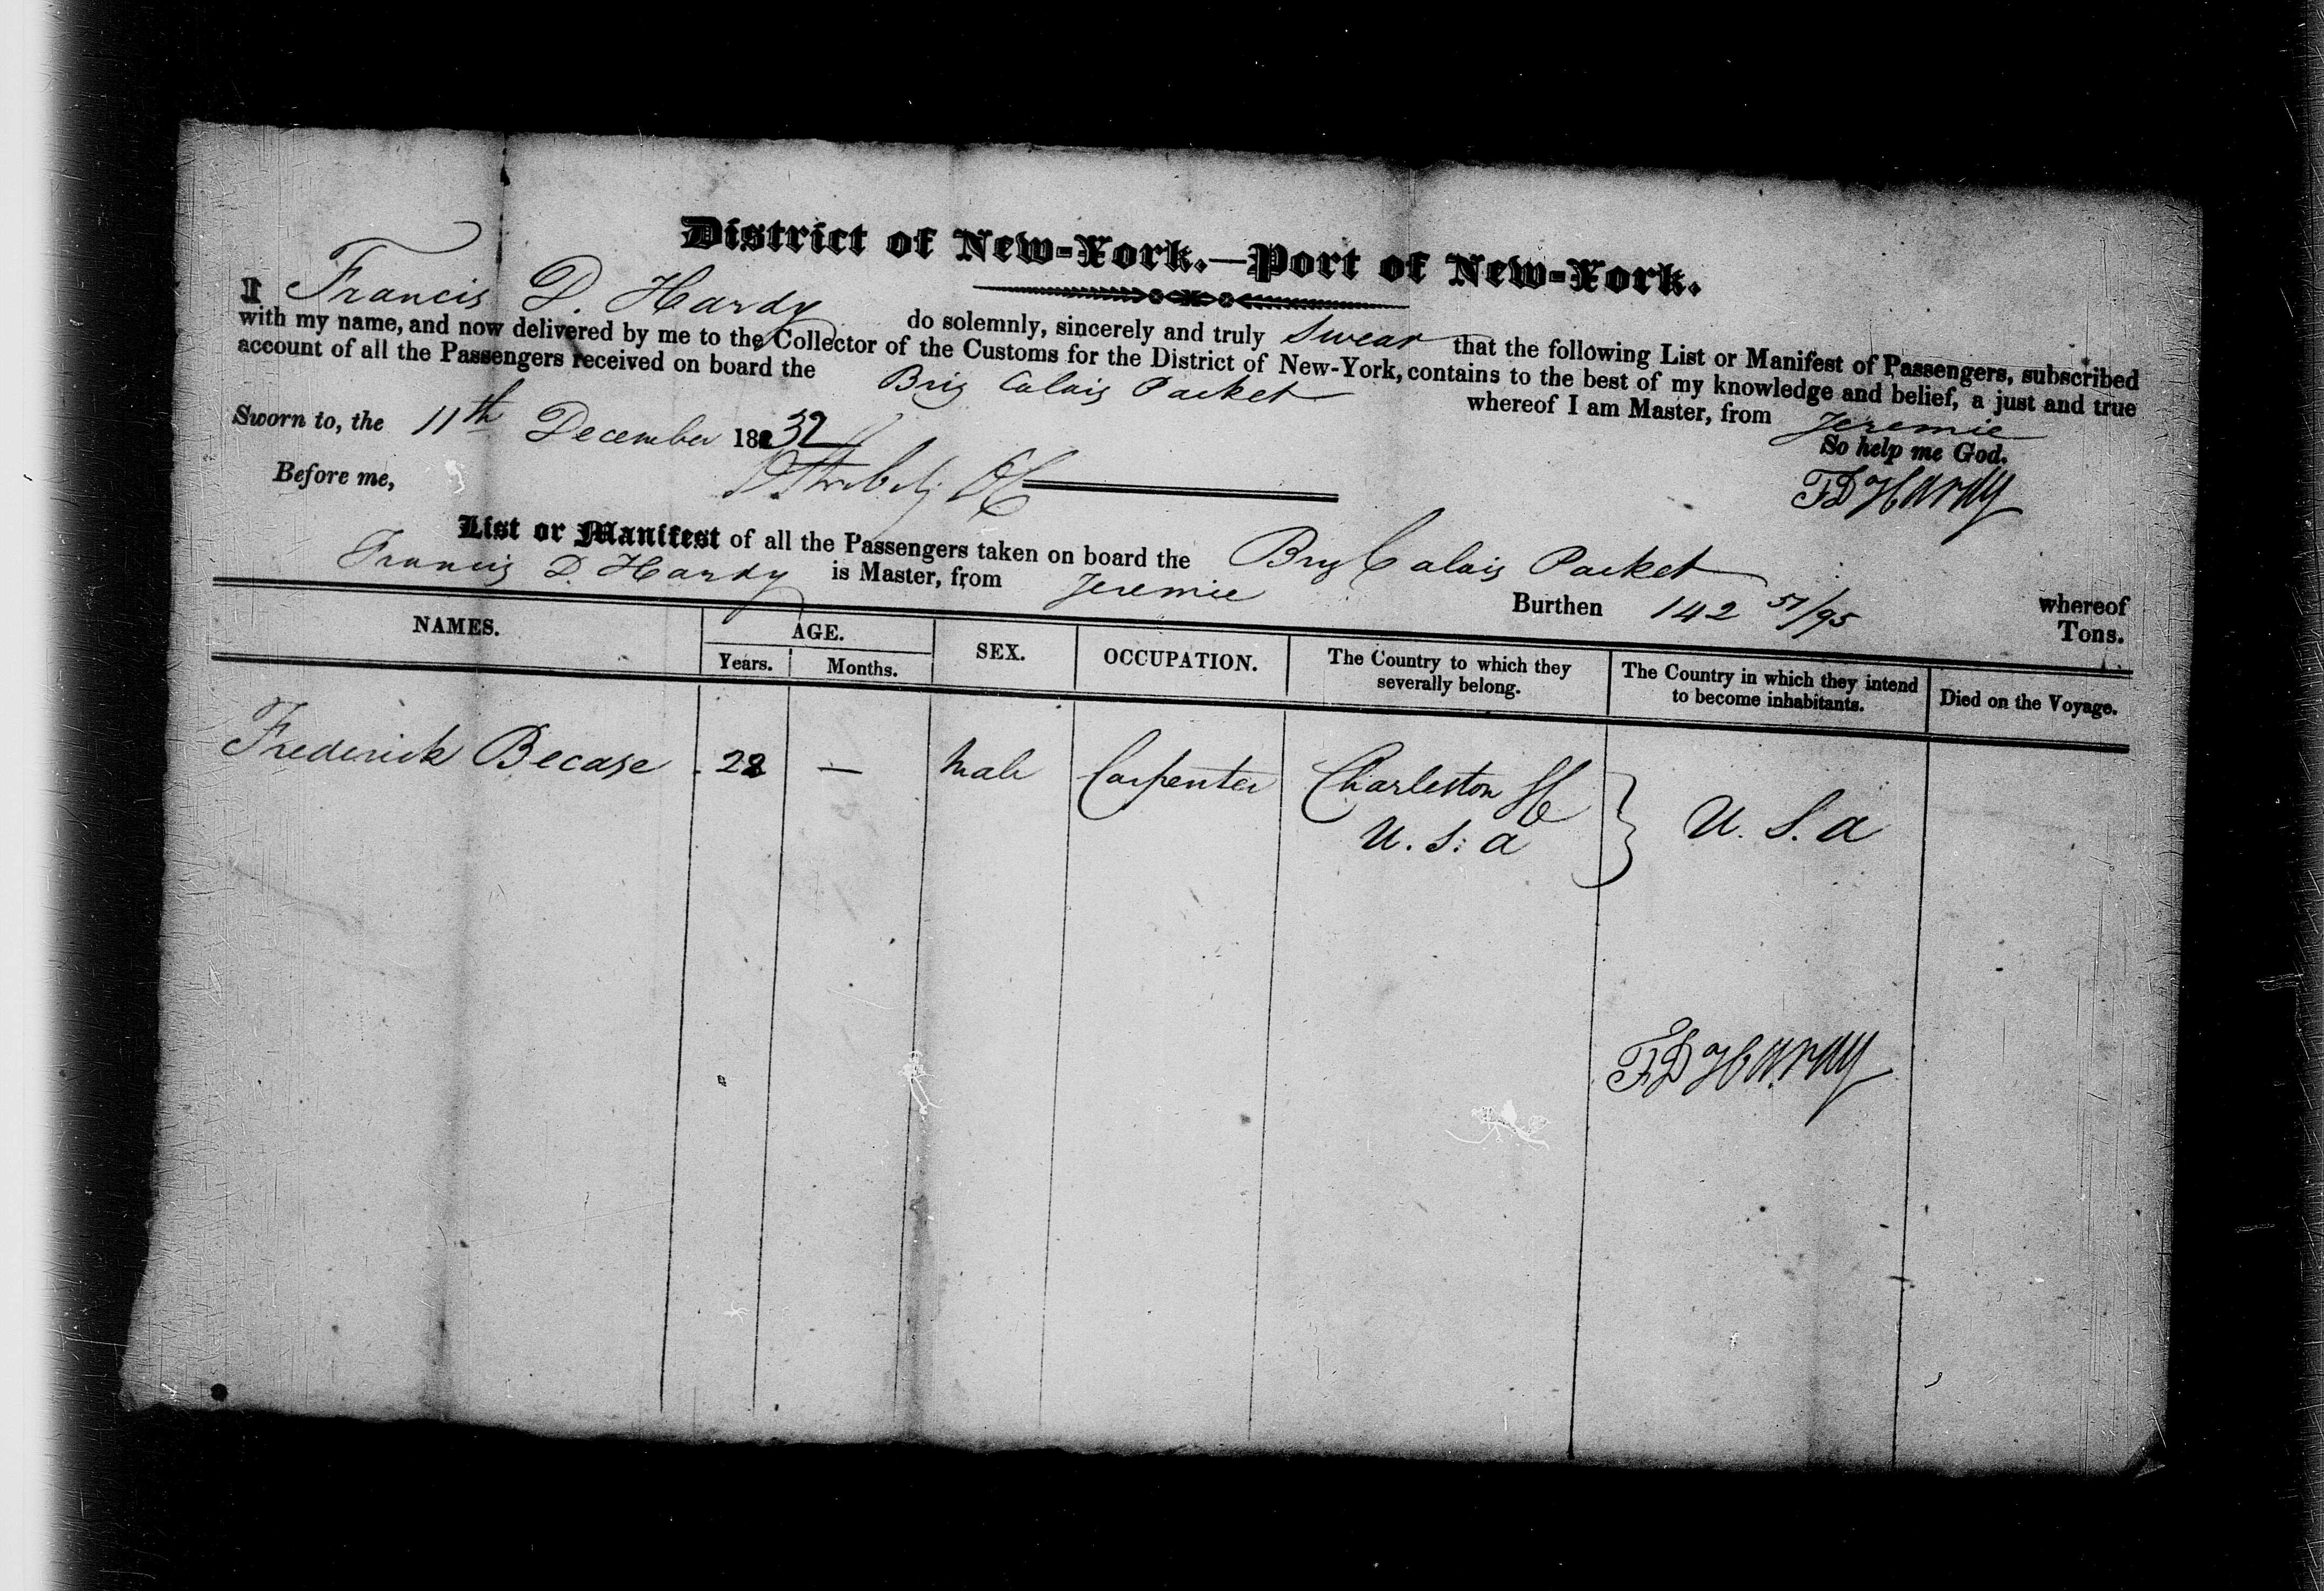 District of New-York.—Port of New-York.
I Francis D. Hardy do solemnly, sincerely and truly Swear that the following List or Manifest of Passengers, subscribed
with my name, and now delivered by me to the Collector of the Customs for the District of New-York, contains to the best of my knowledge and belief, a just and true
account of all the Passengers received on board the Brig Calais Packet whereof I am Master, from Jeremie
Sworn to, the 11th December 1832 So help me God.
Before me, FD Hardy
List or Manifest of all the Passengers taken on board the Brig Calais Packet whereof
Francis D. Hardy is Master, from Jeremie Burthen 142 57/95 Tons.
NAMES. AGE. SEX. OCCUPATION. The Country to which they severally belong. The Country in which they intend to become inhabitants. Died on the Voyage.
Years. Months.
Frederick Becase 22 — Male Carpenter Charleston SC U.S.A
U.S:A
FD Hardy